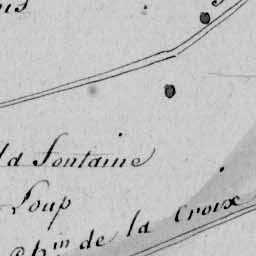 la fontaine
Loup
Ch.in de la Croix